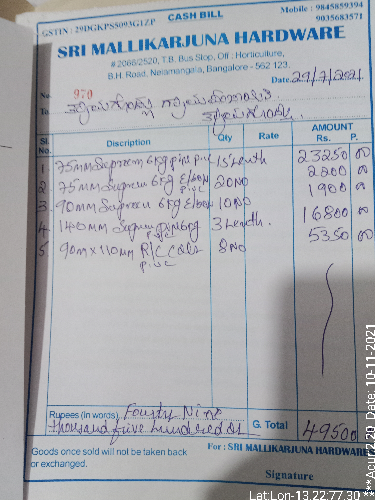 CASH BILL
GSTIN : 29DGKPS5093G1ZP
Mobile : 9845859394
9035683571
SRI MALLIKARJUNA HARDWARE
# 2068/2520, T.B. Bus Stop, Off : Horticulture,
B.H. Road, Nelamangala, Bangalore - 562 123.
No. 970
Date 29/7/2021
To
Sl. No. Discription Qty Rate AMOUNT Rs. P.
1 75mm Supreem 6kg pipe p.v.c 15 Lenth 23250 00
2 75mm Supreem 6kg Elbow p.v.c 20 NO 2200 00
3 90mm Supreem 6kg Elbow 10 NO 1900 00
4 140mm Supreem pipe 6kg 3 Lenth. 16800 00
5 90mm x 110mm p.v.c 8 NO 5350 00
Rupees (in words) Fourty Nine
thousand five hundered
G. Total 49500
Goods once sold will not be taken back
or exchanged.
For : SRI MALLIKARJUNA HARDWARE
Signature
Lat:Lon-13.22:77.30
***Acur:2.20 Date, 10-11-2021